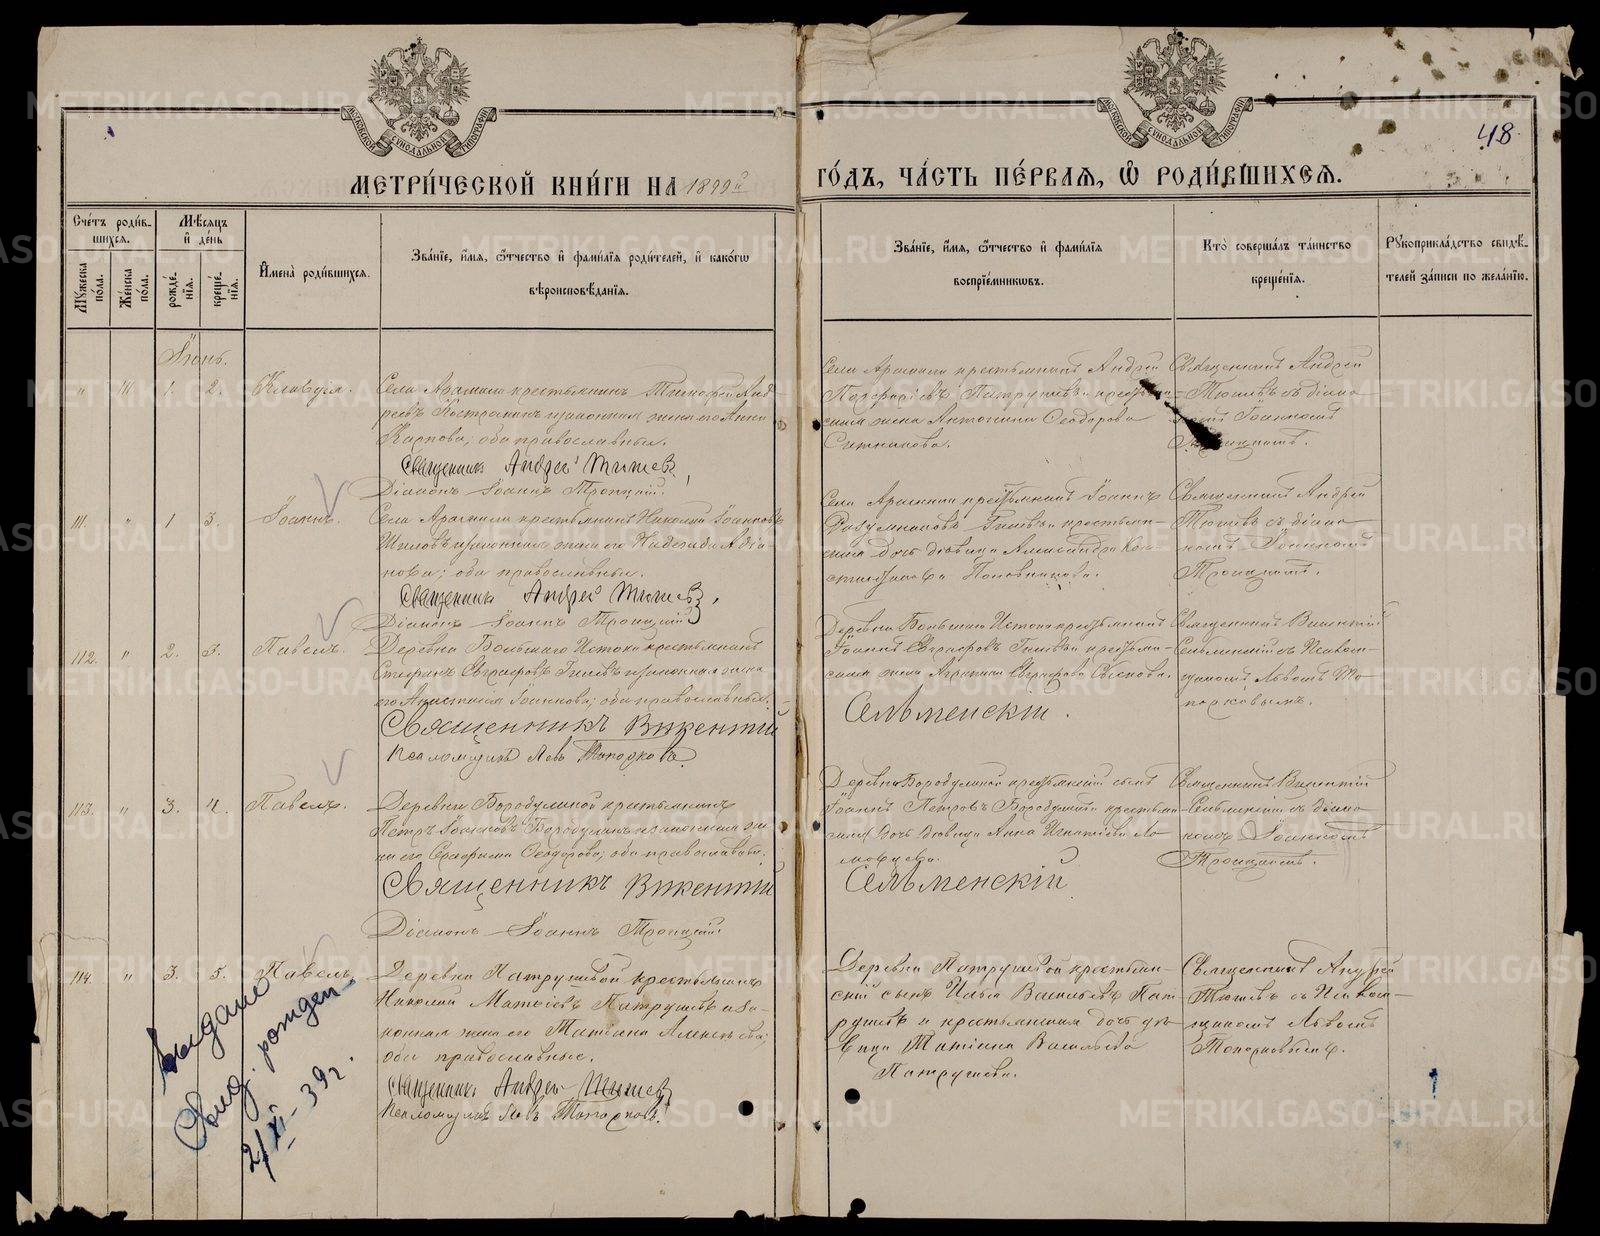 МОСКОВСКОЙ СѴНОДАЛЬНОЙ ТИПОГРАФІИ
МОСКОВСКОЙ СѴНОДАЛЬНОЙ ТИПОГРАФІИ
48.
МЕТРИ́ЧЕСКОЙ КНИ́ГИ НА 1899й
ГО́ДЪ, ЧА́СТЬ ПЕ́РВАЯ, Ѡ РОДИ́ВШИХСЯ.
Сче́тъ роди́в-
шихся.
Мꙋ́жеска по́ла.
Же́нска по́ла.
Мѣ́сяцъ и҆ де́нь
рожде́-нїя.
креще́-нїя.
И҆мена̀ роди́вшихся.
Зва́нїе, и҆́мя, ѻ҆́тчество и҆ фами́лїя роди́телей, и҆ како́гѡ
вѣроисповѣ́данїя.
Зва́нїе, и҆́мя, ѻ҆́тчество и҆ фами́лїя
воспрїе́мникѡвъ.
Кто̀ соверша́лъ та́инство
креще́нїя.
Рꙋкоприкла́дство свидѣ́-
телей за́писи по жела́нїю.
Іюнь.
" 1. 2. Клавдія.
Села Арамили крестьянинъ Тимофей Анд
реевъ и законная жена его Анна
Карпова; оба православные.
Священникъ Андрей
Діаконъ Іоаннъ Троицкій.
Села Арамили крестьянинъ Андрей
Патрушевъ и
жена Антонина Ѳеодорова
Ситникова.
Священникъ Андрей
съ діако-
номъ Іоанномъ
Троицкимъ.
111. " 1 3. Іоаннъ.
Села Арамили крестьянинъ Николай Іоанновъ
и законная жена его Надежда
оба православные.
Священникъ Андрей
Діаконъ Іоаннъ Троицкій
Села Арамили крестьянинъ Іоаннъ
и крестьян-
ская дочь дѣвица Александра Кон-
стантинова
Священникъ Андрей
съ діако-
номъ Іоанномъ
Троицкимъ.
112. " 2. 3. Павелъ.
Деревни Большаго Истока крестьянинъ
Стефанъ Евграфовъ и законная жена
его Анастасія Іоаннова; оба православные.
Священникъ Викентій
Псаломщикъ Левъ Топорковъ.
Деревни Большаго Истока крестьянинъ
Іоаннъ Евграфовъ и крестьян-
ская жена Агрипина Евграфова
Сельменскій.
Священникъ Викентій
Сельменскій съ Псалом-
щикомъ Львомъ То-
порковымъ.
113. " 3. 4. Павелъ.
Деревни Бородулиной крестьянинъ
Петръ Іоанновъ Бородулинъ и законная же-
на его Серафима Ѳеодорова; оба православные.
Священникъ Викентій
Діаконъ Іоаннъ Троицкій
Деревни Бородулиной крестьянскій сынъ
Іоаннъ Петровъ Бородулинъ и крестьян-
ская дочь дѣвица Анна Игнатіева
Сельменскій
Священникъ Викентій
Сельменскій съ діако-
номъ Іоанномъ
Троицкимъ.
114. " 3. 5. Павелъ
Деревни Патрушевой крестьянинъ
Николай Матѳеевъ Патрушевъ и за-
конная жена его Татіана Алексѣева;
оба православные.
Священникъ Андрей
Псаломщикъ Левъ Топорковъ.
Деревни Патрушевой крестьян-
скій сынъ Илья Васильевъ Пат-
рушевъ и крестьянская дочь дѣ-
вица Татіана Васильева
Патрушева.
Священникъ Андрей
съ Псалом-
щикомъ Львомъ
Топорковымъ.
Выдано
Свид. рожден-
2/XI-39 г.
METRIKI.GASO-URAL.RU